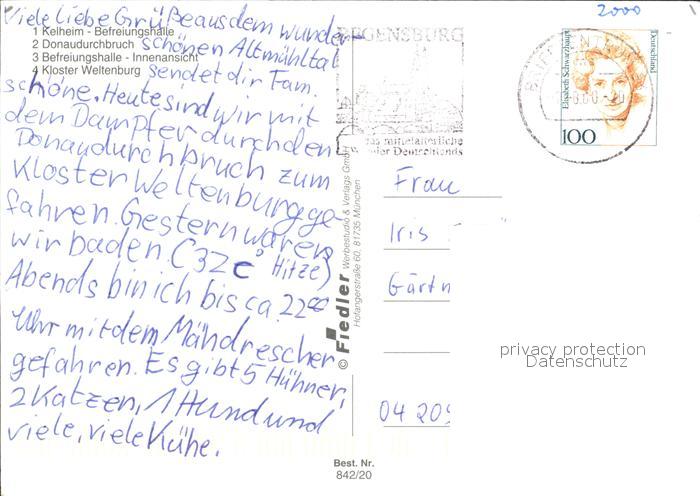 Viele liebe Grüße aus dem wunder-
schönen Altmühltal
sendet dir Fam.
schöne. Heute sind wir mit
dem Dampfer durch den
Donaudurchbruch zum
Kloster Weltenburg ge-
fahren. Gestern waren
wir baden. (32C° Hitze)
Abends bin ich bis ca. 22⁰⁰
Uhr mit dem Mähdrescher
gefahren. Es gibt 5 Hühner,
2 Katzen, 1 Hund und
viele, viele Kühe.
1 Kelheim - Befreiungshalle
2 Donaudurchbruch
3 Befreiungshalle - Innenansicht
4 Kloster Weltenburg
REGENSBURG
das mittelalterliche
Deutschlands
2000
Elisabeth Schwarzhaupt
Deutschland
100
BRIEFZENTRUM
Frau
Iris
Gärtn
04 209
© Fiedler Werbestudio & Verlags GmbH
Hofangerstraße 60, 81735 München
Best. Nr.
842/20
privacy protection
Datenschutz